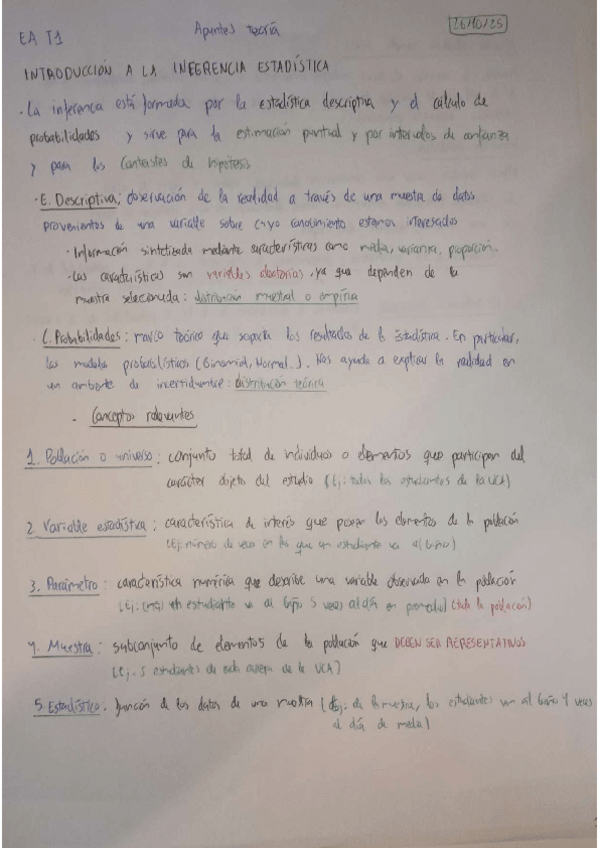 EA T1
Apuntes teoría
26/10/25
INTRODUCCIÓN A LA INFERENCIA ESTADÍSTICA
· La inferencia está formada por la estadística descriptiva y el cálculo de
probabilidades y sirve para la estimación puntual y por intervalos de confianza
y para los Contrastes de hipótesis
· E. Descriptiva: observación de la realidad a través de una muestra de datos
provenientes de una variable sobre cuyo conocimiento estamos interesados
· Información sintetizada mediante características como media, varianza, proporción.
· Las características son variables aleatorias, ya que dependen de la
muestra seleccionada: distribución muestral o empírica
· C. Probabilidades: marco teórico que soporta los resultados de la Estadística. En particular,
los modelos probabilísticos (Binomial, Normal..). Nos ayuda a explicar la realidad en
un ambiente de incertidumbre: distribución teórica
- Conceptos relevantes
1. Población o universo: conjunto total de individuos o elementos que participan del
carácter objeto del estudio (Ej: todos los estudiantes de la UCA)
2. Variable estadística: característica de interés que poseen los elementos de la población
(Ej: número de veces en las que un estudiante va al baño)
3. Parámetro: característica numérica que describe una variable observada en la población
(Ej: estudiante va al baño 5 veces al día en promedio) (toda la población)
4. Muestra: subconjunto de elementos de la población que DEBEN SER REPRESENTATIVOS
(Ej. 5 estudiantes de cada carrera de la UCA)
5. Estadístico: función de los datos de una muestra (Ej: de la muestra, los estudiantes van al baño 4 veces
al día de media)